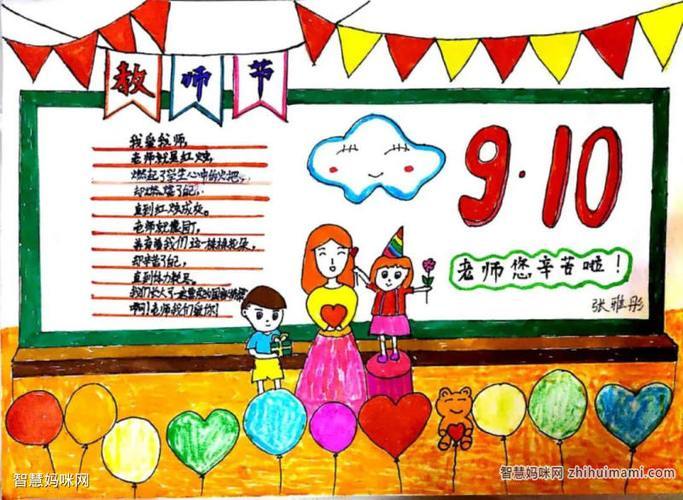 教师节
我爱教师,
老师就是红烛,
燃起了学生心中的火把,
却燃烧了自己,
直到红烛成灰。
老师就像园丁,
着我们这一棵棵花朵,
却辛苦了自己,
直到体力耗尽。
我们长大了一定要
啊!老师我们爱你!
9·10
老师您辛苦啦!
张雅彤
智慧妈咪网
智慧妈咪网 zhihuimami.com